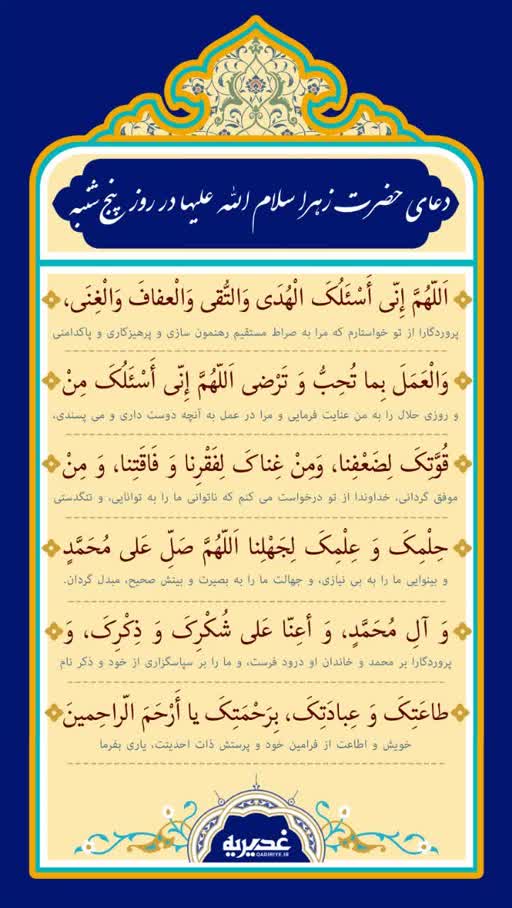 دعای حضرت زهرا سلام الله علیها در روز پنج شنبه
اَللّهُمَّ إِنّی أَسْئَلُکَ الْهُدَی وَالتُّقی وَالْعفافَ وَالْغِنَی،
پروردگارا از تو خواستارم که مرا به صراط مستقیم رهنمون سازی و پرهیزکاری و پاکدامنی
وَالْعَمَلَ بِما تُحِبُّ وَ تَرْضی اَللّهُمَّ إِنّی أَسْئَلُکَ مِنْ
و روزی حلال را به من عنایت فرمایی و مرا در عمل به آنچه دوست داری و می پسندی،
قُوَّتِکَ لِضَعْفِنا، وَمِنْ غِناکَ لِفَقْرِنا وَ فَاقَتِنا، وَ مِنْ
موفق گردانی، خداوندا از تو درخواست می کنم که ناتوانی ما را به توانایی، و تنگدستی
حِلْمِکَ وَ عِلْمِکَ لِجَهْلِنا اَللّهُمَّ صَلِّ عَلی مُحَمَّدٍ
و بینوایی ما را به بی نیازی، و جهالت ما را به بصیرت و بینش صحیح، مبدل گردان.
وَ آلِ مُحَمَّدٍ، وَ أعِنّا عَلی شُکْرِکَ وَ ذِکْرِکَ، وَ
پروردگارا بر محمد و خاندان او درود فرست، و ما را بر سپاسگزاری از خود و ذکر نام
طاعَتِکَ وَ عِبادَتِکَ، بِرَحْمَتِکَ یا أَرْحَمَ الّراحِمینَ
خویش و اطاعت از فرامین خود و پرستش ذات احدیتت، یاری بفرما
غدیریه
QADIRIYE.IR